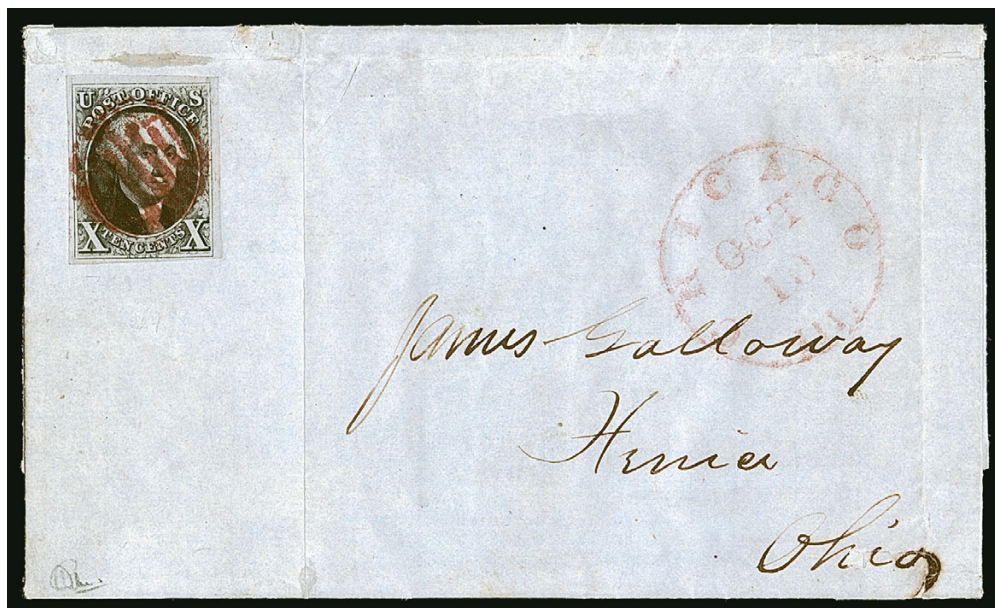 U S
POST OFFICE
X TEN CENTS X
CHICAGO Ill.
OCT
10
James Galloway
Xenia
Ohio